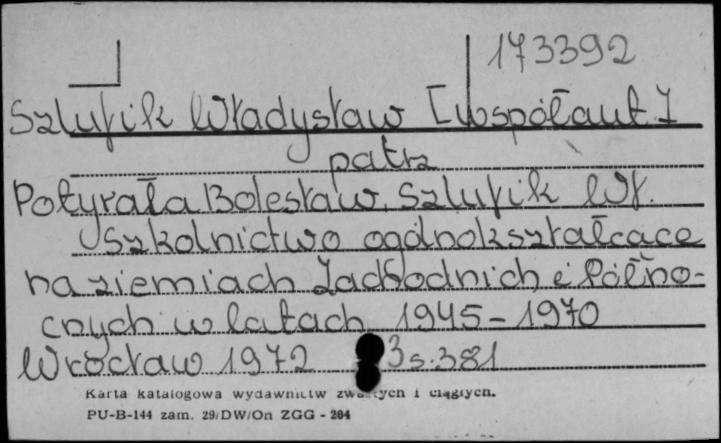 173392
Szlufik Władysław [współaut.]
patrz
Potyrała Bolesław, Szlufik Wł.
Szkolnictwo ogólnokształcące
na ziemiach Zachodnich i Północnych w latach 1945-1970
Wrocław 1972 s. 381
Karta katalogowa wydawnictw zwartych i ciągłych.
PU-B-144 zam. 29/DW/On ZGG - 204